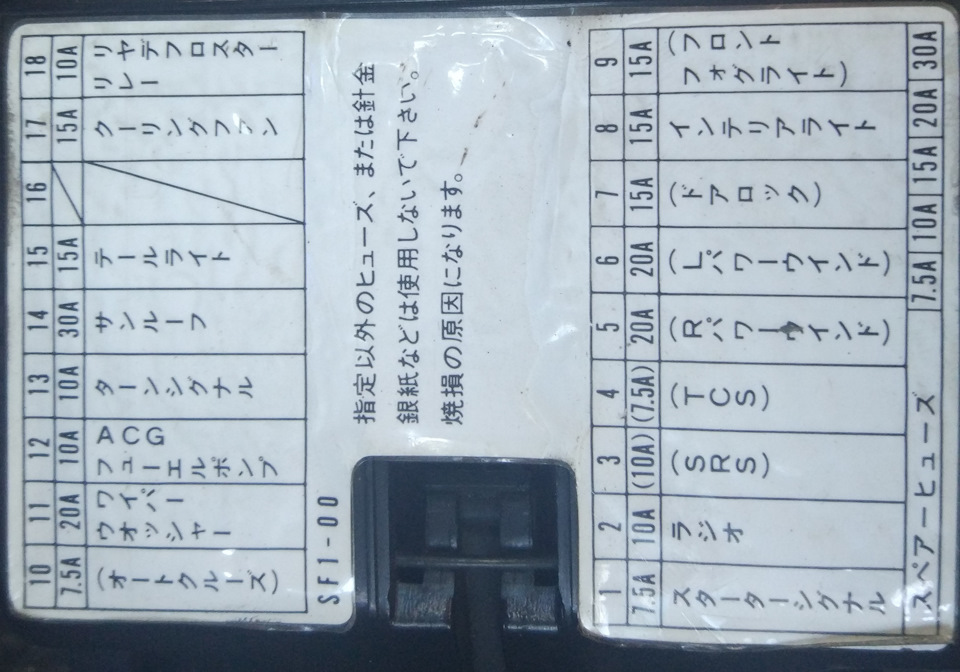 10 11 12 13 14 15 16 17 18
7.5A 20A 10A 10A 30A 15A 15A 10A
(オートクルーズ)
ワイパー
ウオッシャー
ACG
フューエルポンプ
ターンシグナル
サンルーフ
テールライト
クーリングファン
リヤデフロスター
リレー
SF1-00
指定以外のヒューズ、または針金
銀紙などは使用しないで下さい。
焼損の原因になります。
1 2 3 4 5 6 7 8 9
7.5A 10A (10A) (7.5A) 20A 20A 15A 15A 15A
スターターシグナル
ラジオ
(SRS)
(TCS)
(Rパワーウインド)
(Lパワーウインド)
(ドアロック)
インテリアライト
(フロント
フォグライト)
スペアーヒューズ 7.5A 10A 15A 20A 30A